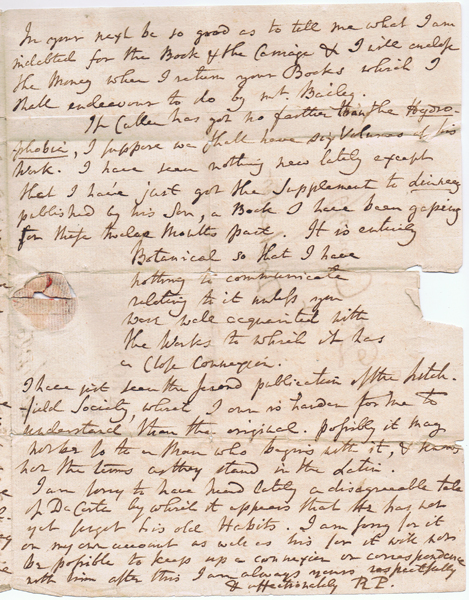 In your next be so good as to tell me what I am
indebted for the Book & the Carriage & I will enclose
the Money when I return your Books which I
shall endeavour to do by Mr. Bailey.
If Cullen has got no farther than the Hydro-
phobia, I suppose we shall have six Volumes of his
Work. I have seen nothing new lately except
that I have just got the Supplement to Linneus
published by his Son, a Book I have been gaping
for these twelve Months past. It is entirely
Botanical so that I have
nothing to communicate
relating to it unless you
were well acquainted with
the Works to which it has
a Close Connexion.
I have just seen the second publication of the Litch-
field Society, which I own is harder for me to
understand than the original. possibly it may
not be so to a Man who begins with it, & knows
not the terms as they stand in the Latin.
I am sorry to have heard lately a disagreeable tale
of DaCosta by which it appears that he has not
yet forgot his old Habits. I am sorry for it
on my own account as well as his for it will not
be possible to keep up a connexion or correspondence
with him after this I am always yours respectfully
& affectionately R P.